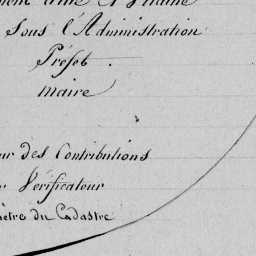 Sous l'Administration
Préfet.
Maire
des Contributions
Vérificateur
du Cadastre